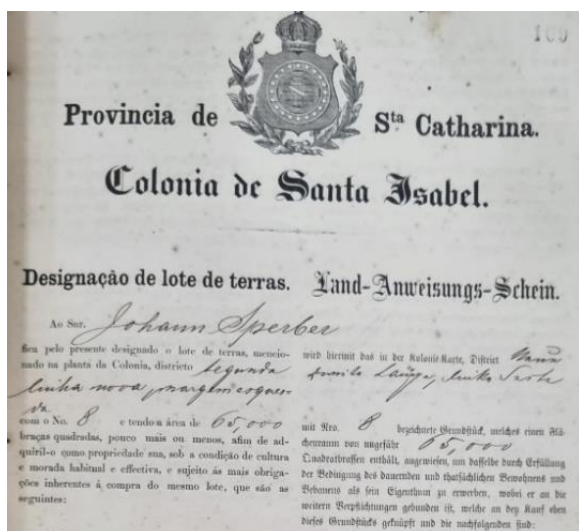 169
Provincia de Sta Catharina.
Colonia de Santa Isabel.
Designação de lote de terras.
Ao Snr. Johann Sperber
fica pelo presente designado o lote de terras, mencio-
nado na planta da Colonia, districto Segunda
linha nova, margem esquer-
da
com o No. 8 e tendo a área de 65,000
braças quadradas, pouco mais ou menos, afim de ad-
quiril-o como propriedade sua, sob a condição de cultura
e morada habitual e effectiva, e sujeito ás mais obriga-
ções inherentes á compra do mesmo lote, que são as
seguintes:
Land-Anweisungs-Schein.
wird hiermit das in der Kolonie-Karte, District
zweite linke Seite
mit Nro. 8 bezeichnete Grundstück, welches einen Flä-
chenraum von ungefähr 65,000
Quadratbrassen enthält, angewiesen, um dasselbe durch Erfüllung
der Bedingung des dauernden und thatsächlichen Bewohnens und
Bebauens als sein Eigenthum zu erwerben, wobei er an die
weitern Verpflichtungen gebunden ist, welche an den Kauf eben
dieses Grundstücks geknüpft und die nachfolgenden sind: